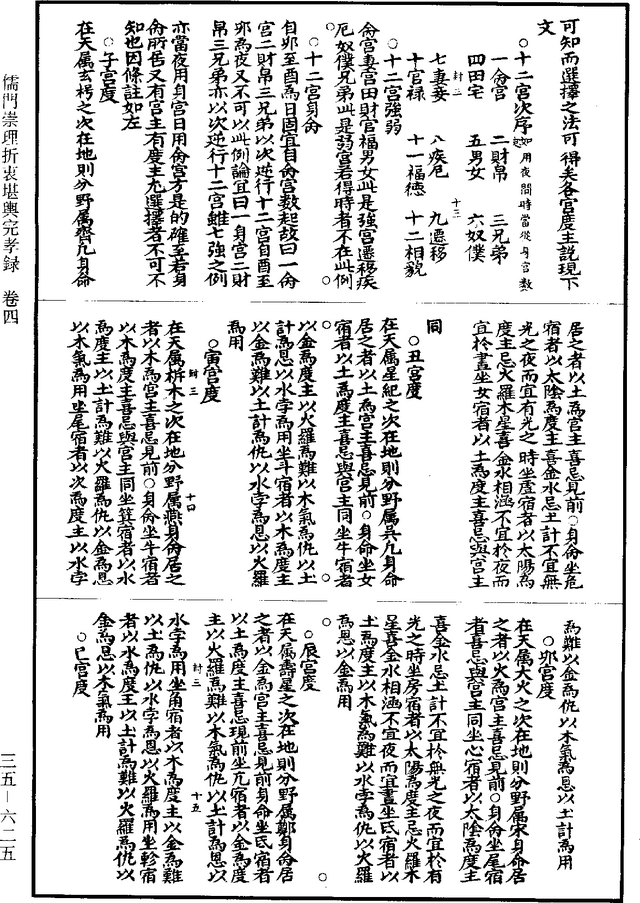 可知而選擇之法可得矣各宮度主説現下
文
○十二宮次序起如用夜間時當從身宮數
一命宮　二財帛　三兄弟
四田宅　五男女　六奴僕
封三　十三
七妻妾　八疾厄　九遷移
十官禄　十一福徳　十二相貌
○十二宮強弱
命宮妻宮田財官福男女此是強宮遷移疾
厄奴僕兄弟此是弱宮若得時者不在此例
○十二宮身命
自卯至酉為日固宜自命宮数起故曰一命
宮二財帛三兄弟以次逆行十二宮自酉至
卯為夜又不可以此例論宜曰一身宮二財
帛三兄弟亦以次逆行十二宮雖七強之例
亦當夜用身宮日用命宮方是的確至若身
命所居又有宮主有度主尤選擇者不可不
知也因條註如左
○子宮度
在天属玄枵之次在地則分野属齊凡身命
居之者以土為宮主喜忌見前○身命坐危
宿者以太陰為度主喜金水忌土計不宜無
光之夜而宜有光之時坐虛宿者以太陽為
度主忌火羅木星喜金水相涵不宜於夜而
宜於晝坐女宿者以土為度主喜忌與宮主
同
○丑宮度
在天属星紀之次在地則分野属吳凡身命
居之者以土為宮主喜忌見前○身命坐女
宿者以土為度主喜忌與宮主同坐牛宿者
以金為度主以火羅為難以木氣為仇以土
計為恩以水孛為用坐斗宿者以木為度主
以金為難以土計為仇以水孛為恩以火羅
為用
○寅宮度
封三　十四
在天属析木之次在地分野属燕身命居之
者以木為宮主喜忌見前○身命坐牛宿者
以木為度主喜忌與宮主同坐箕宿者以水
為度主以土計為難以火羅為仇以金為恩
以木氣為用坐尾宿者以次為度主以水孛
為難以金為仇以木氣為恩以土計為用
○卯宮度
在天属大火之次在地則分野属宋身命居
之者以火為宮主喜忌見前○身命坐尾宿
者喜忌與宮主同坐心宿者以太陰為度主
喜金水忌土計不宜於無光之夜而宜於有
光之時坐房宿者以太陽為度主忌火羅木
星喜金水相涵不宜夜而宜晝坐氐宿者以
土為度主以木氣為難以水孛為仇以火羅
為恩以金為用
○辰宮度
在天属壽星之次在地則分野属鄭身命居
之者以金為宮主喜忌見前身命坐氐宿者
以土為度主喜忌現前坐亢宿者以金為度
主以火羅為難以木氣為仇以土計為恩以
封三　十五
水孛為用坐角宿者以木為度主以金為難
以土為仇以水孛為恩以火羅為用坐軫宿
者以水為度主以土計為難以火羅為仇以
金為恩以木氣為用
○巳宮度
儒門崇理折衷堪輿完孝録　卷四
三五—六二五